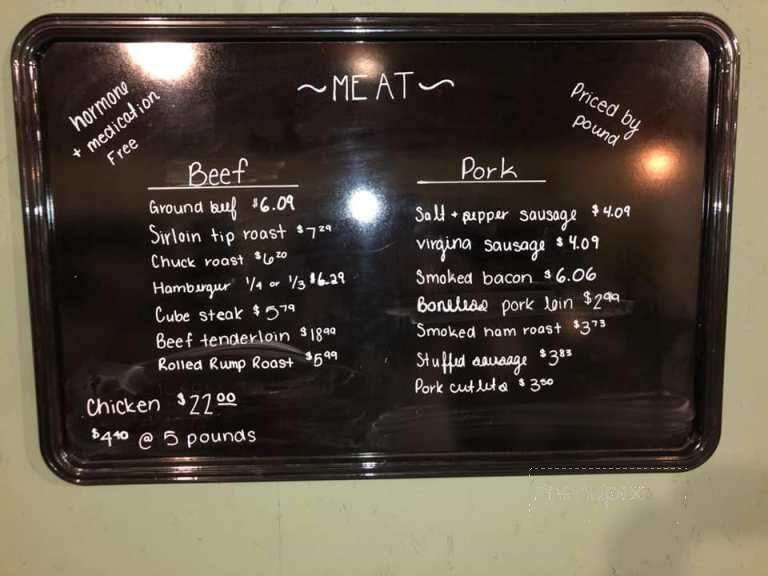 ~MEAT~
hormone
+ medication
Free
Priced by
pound
Beef
Ground beef $6.09
Sirloin tip roast $7.29
Chuck roast $6.20
Hamburger 1/4 or 1/3 $6.29
Cube steak $5.79
Beef tenderloin $18.99
Rolled Rump Roast $5.99
Chicken $22.00
$4.40 @ 5 pounds
Pork
Salt + pepper sausage $4.09
virgina sausage $4.09
Smoked bacon $6.06
Boneless pork loin $2.99
Smoked ham roast $3.73
Stuffed sausage $3.83
Pork cutlets $3.50
menupix